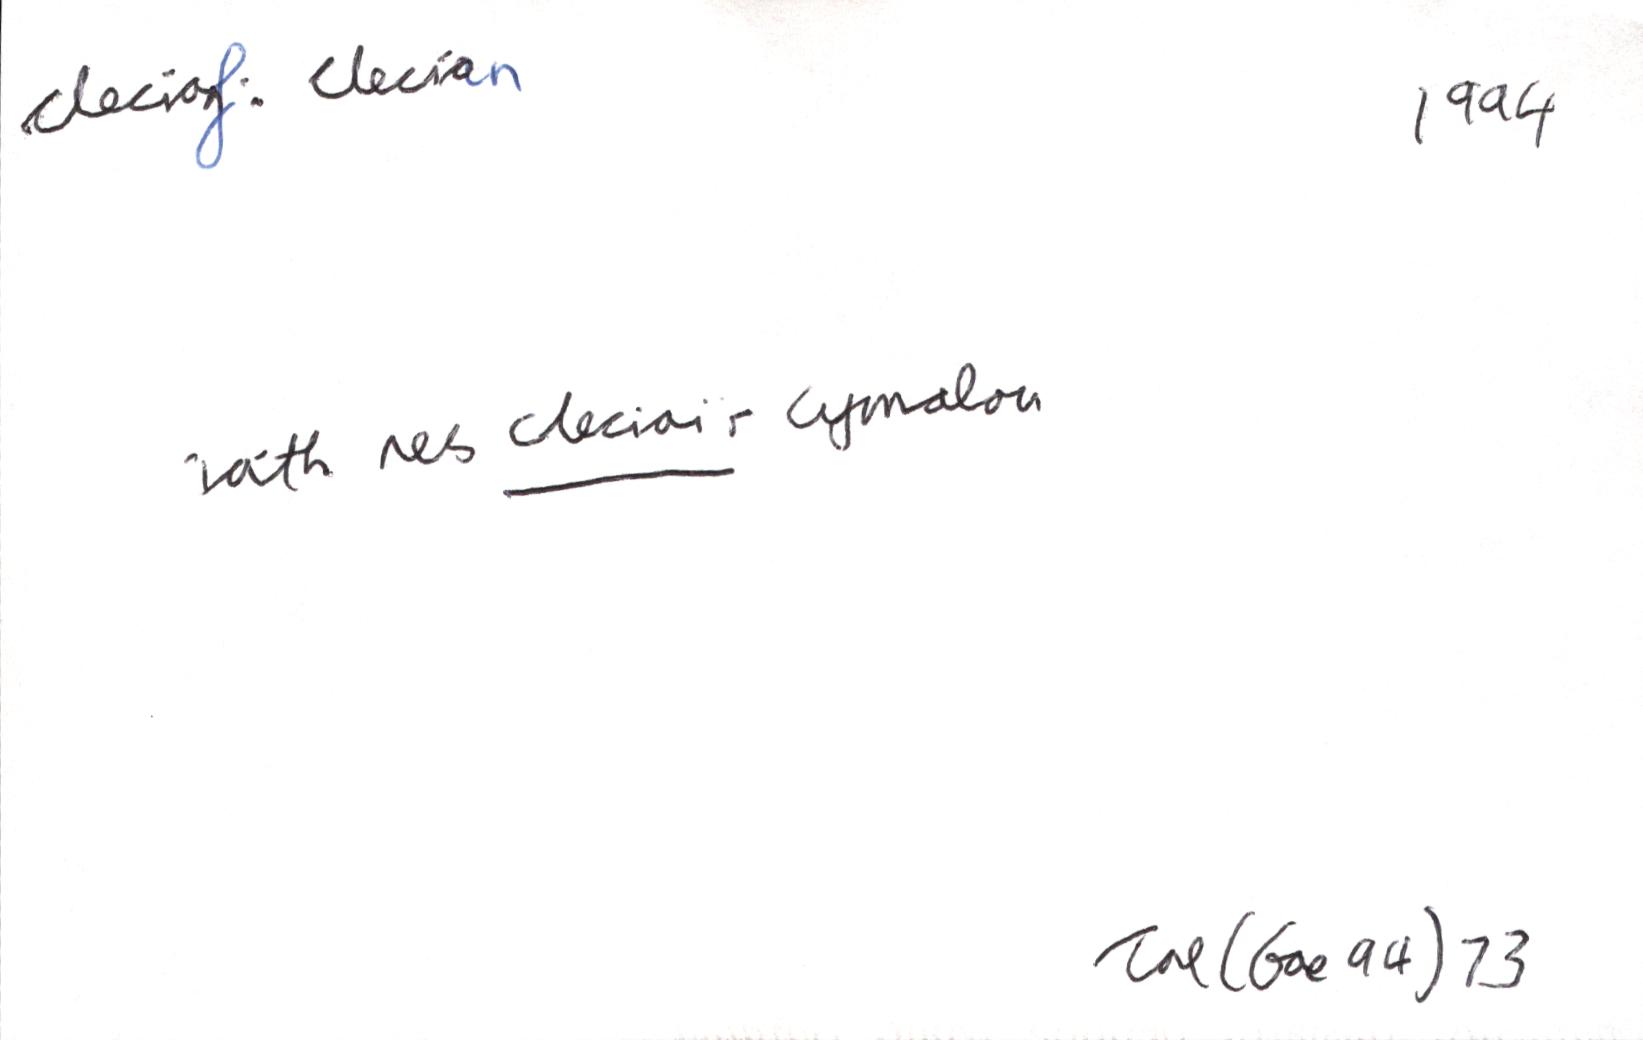 cleciaf: clecian
1994
iath nes cleciai'r cymalau
Tal (Gae 94) 73